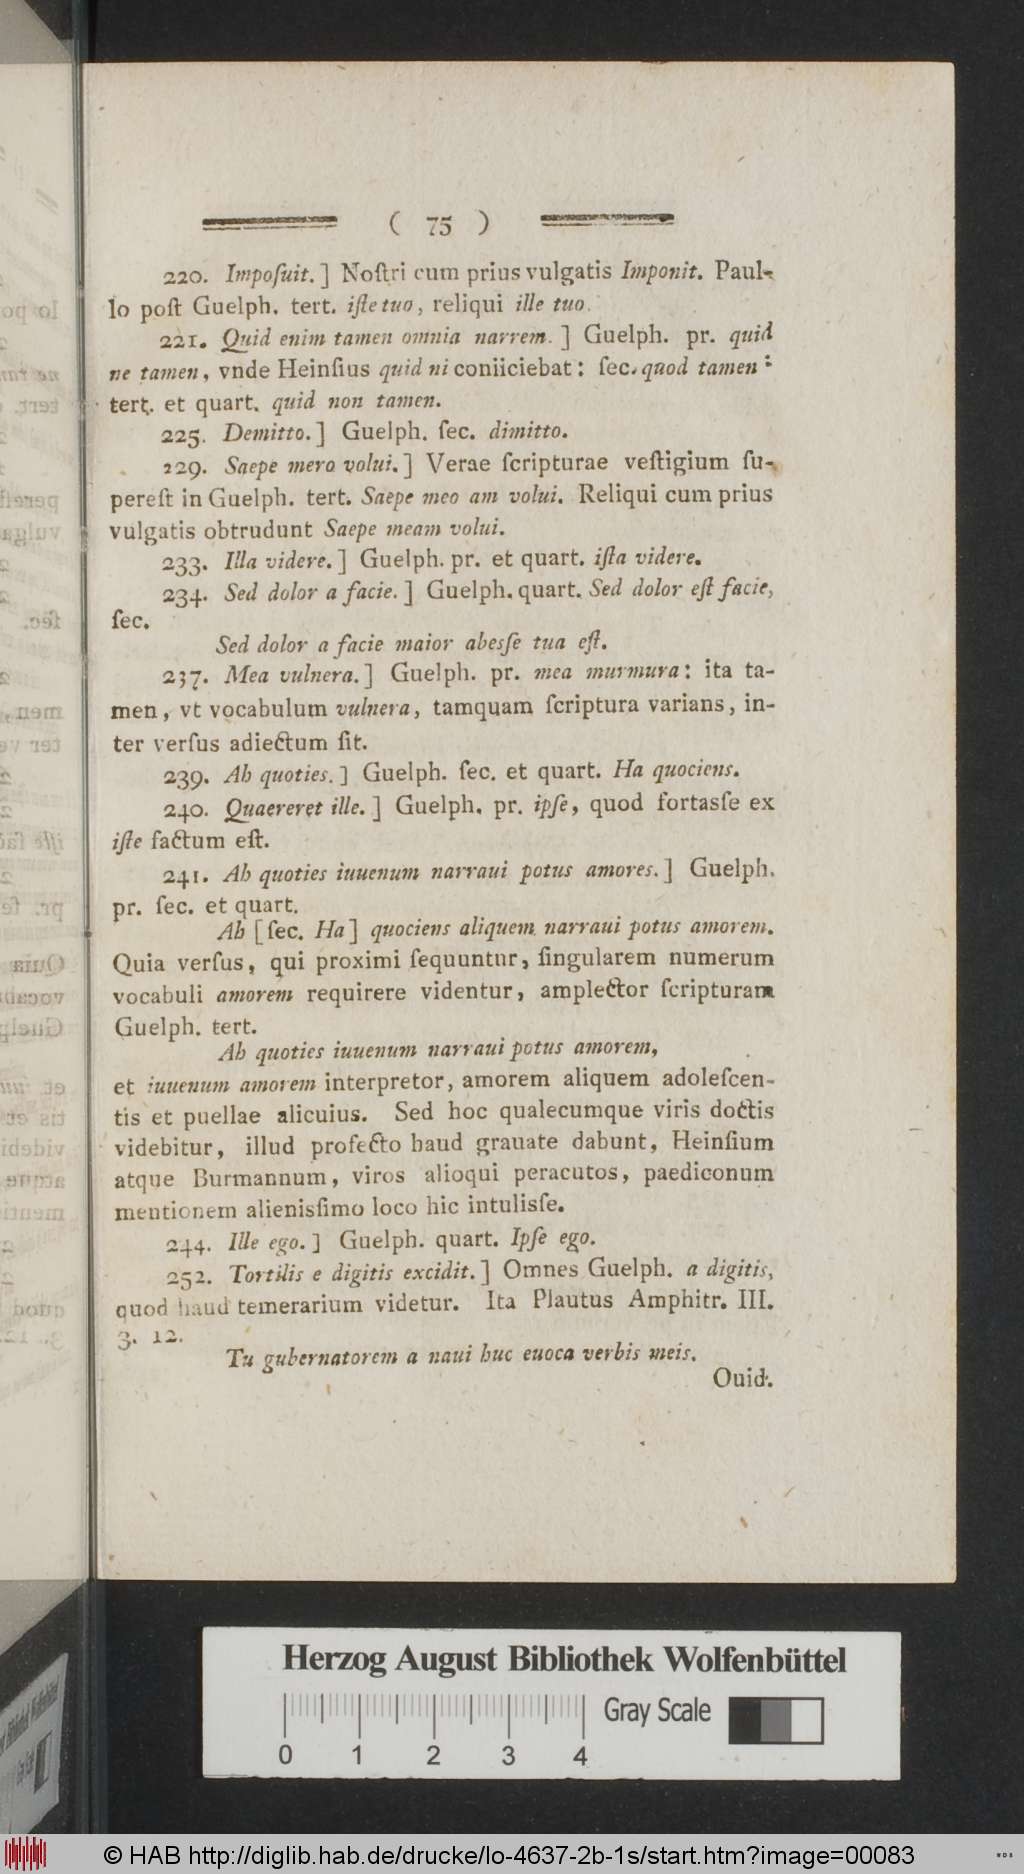 ( 75 )
220. Impoſuit. ] Noſtri cum prius vulgatis Imponit. Paul-
lo poſt Guelph. tert. iſte tuo, reliqui ille tuo.
221. Quid enim tamen omnia narrem. ] Guelph. pr. quid
ne tamen, vnde Heinſius quid ni coniiciebat: ſec. quod tamen:
tert. et quart. quid non tamen.
225. Demitto. ] Guelph. ſec. dimitto.
229. Saepe mero volui. ] Verae ſcripturae veſtigium ſu-
pereſt in Guelph. tert. Saepe meo am volui. Reliqui cum prius
vulgatis obtrudunt Saepe meam volui.
233. Illa videre. ] Guelph. pr. et quart. iſta videre.
234. Sed dolor a facie. ] Guelph. quart. Sed dolor eſt facie,
ſec.
Sed dolor a facie maior abesſe tua eſt.
237. Mea vulnera. ] Guelph. pr. mea murmura: ita ta-
men, vt vocabulum vulnera, tamquam ſcriptura varians, in-
ter verſus adiectum ſit.
239. Ah quoties. ] Guelph. ſec. et quart. Ha quociens.
240. Quaereret ille. ] Guelph. pr. ipſe, quod fortasſe ex
iſte factum eſt.
241. Ah quoties iuuenum narraui potus amores. ] Guelph.
pr. ſec. et quart.
Ah [ ſec. Ha ] quociens aliquem narraui potus amorem.
Quia verſus, qui proximi ſequuntur, ſingularem numerum
vocabuli amorem requirere videntur, amplector ſcripturam
Guelph. tert.
Ah quoties iuuenum narraui potus amorem,
et iuuenum amorem interpretor, amorem aliquem adoleſcen-
tis et puellae alicuius. Sed hoc qualecumque viris doctis
videbitur, illud profecto haud grauate dabunt, Heinſium
atque Burmannum, viros alioqui peracutos, paediconum
mentionem alienisſimo loco hic intulisſe.
244. Ille ego. ] Guelph. quart. Ipſe ego.
252. Tortilis e digitis excidit. ] Omnes Guelph. a digitis,
quod haud temerarium videtur. Ita Plautus Amphitr. III.
3. 12.
Tu gubernatorem a naui huc euoca verbis meis.
Ouid.
Herzog August Bibliothek Wolfenbüttel
Gray Scale
0 1 2 3 4
© HAB http://diglib.hab.de/drucke/lo-4637-2b-1s/start.htm?image=00083